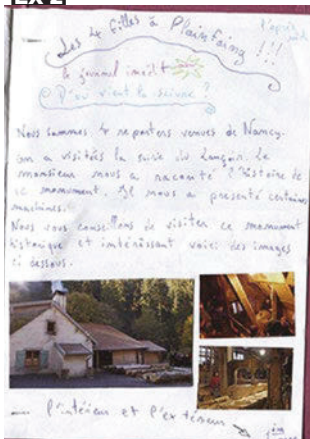 EX 2
l'après
Les 4 filles à Plainfaing !!!
le journal
D'où vient la scierie ?
Nous sommes 4 reporters venues de Nancy.
on a visitées la scirie du Lançoir. Le
monsieur nous a raconté l'histoire de
ce monument. Il nous a presenté certaines
machines.
Nous vous conseillons de visiter ce monument
historique et intéréssant voici des images
ci dessous.
l'intérieur et l'extérieur